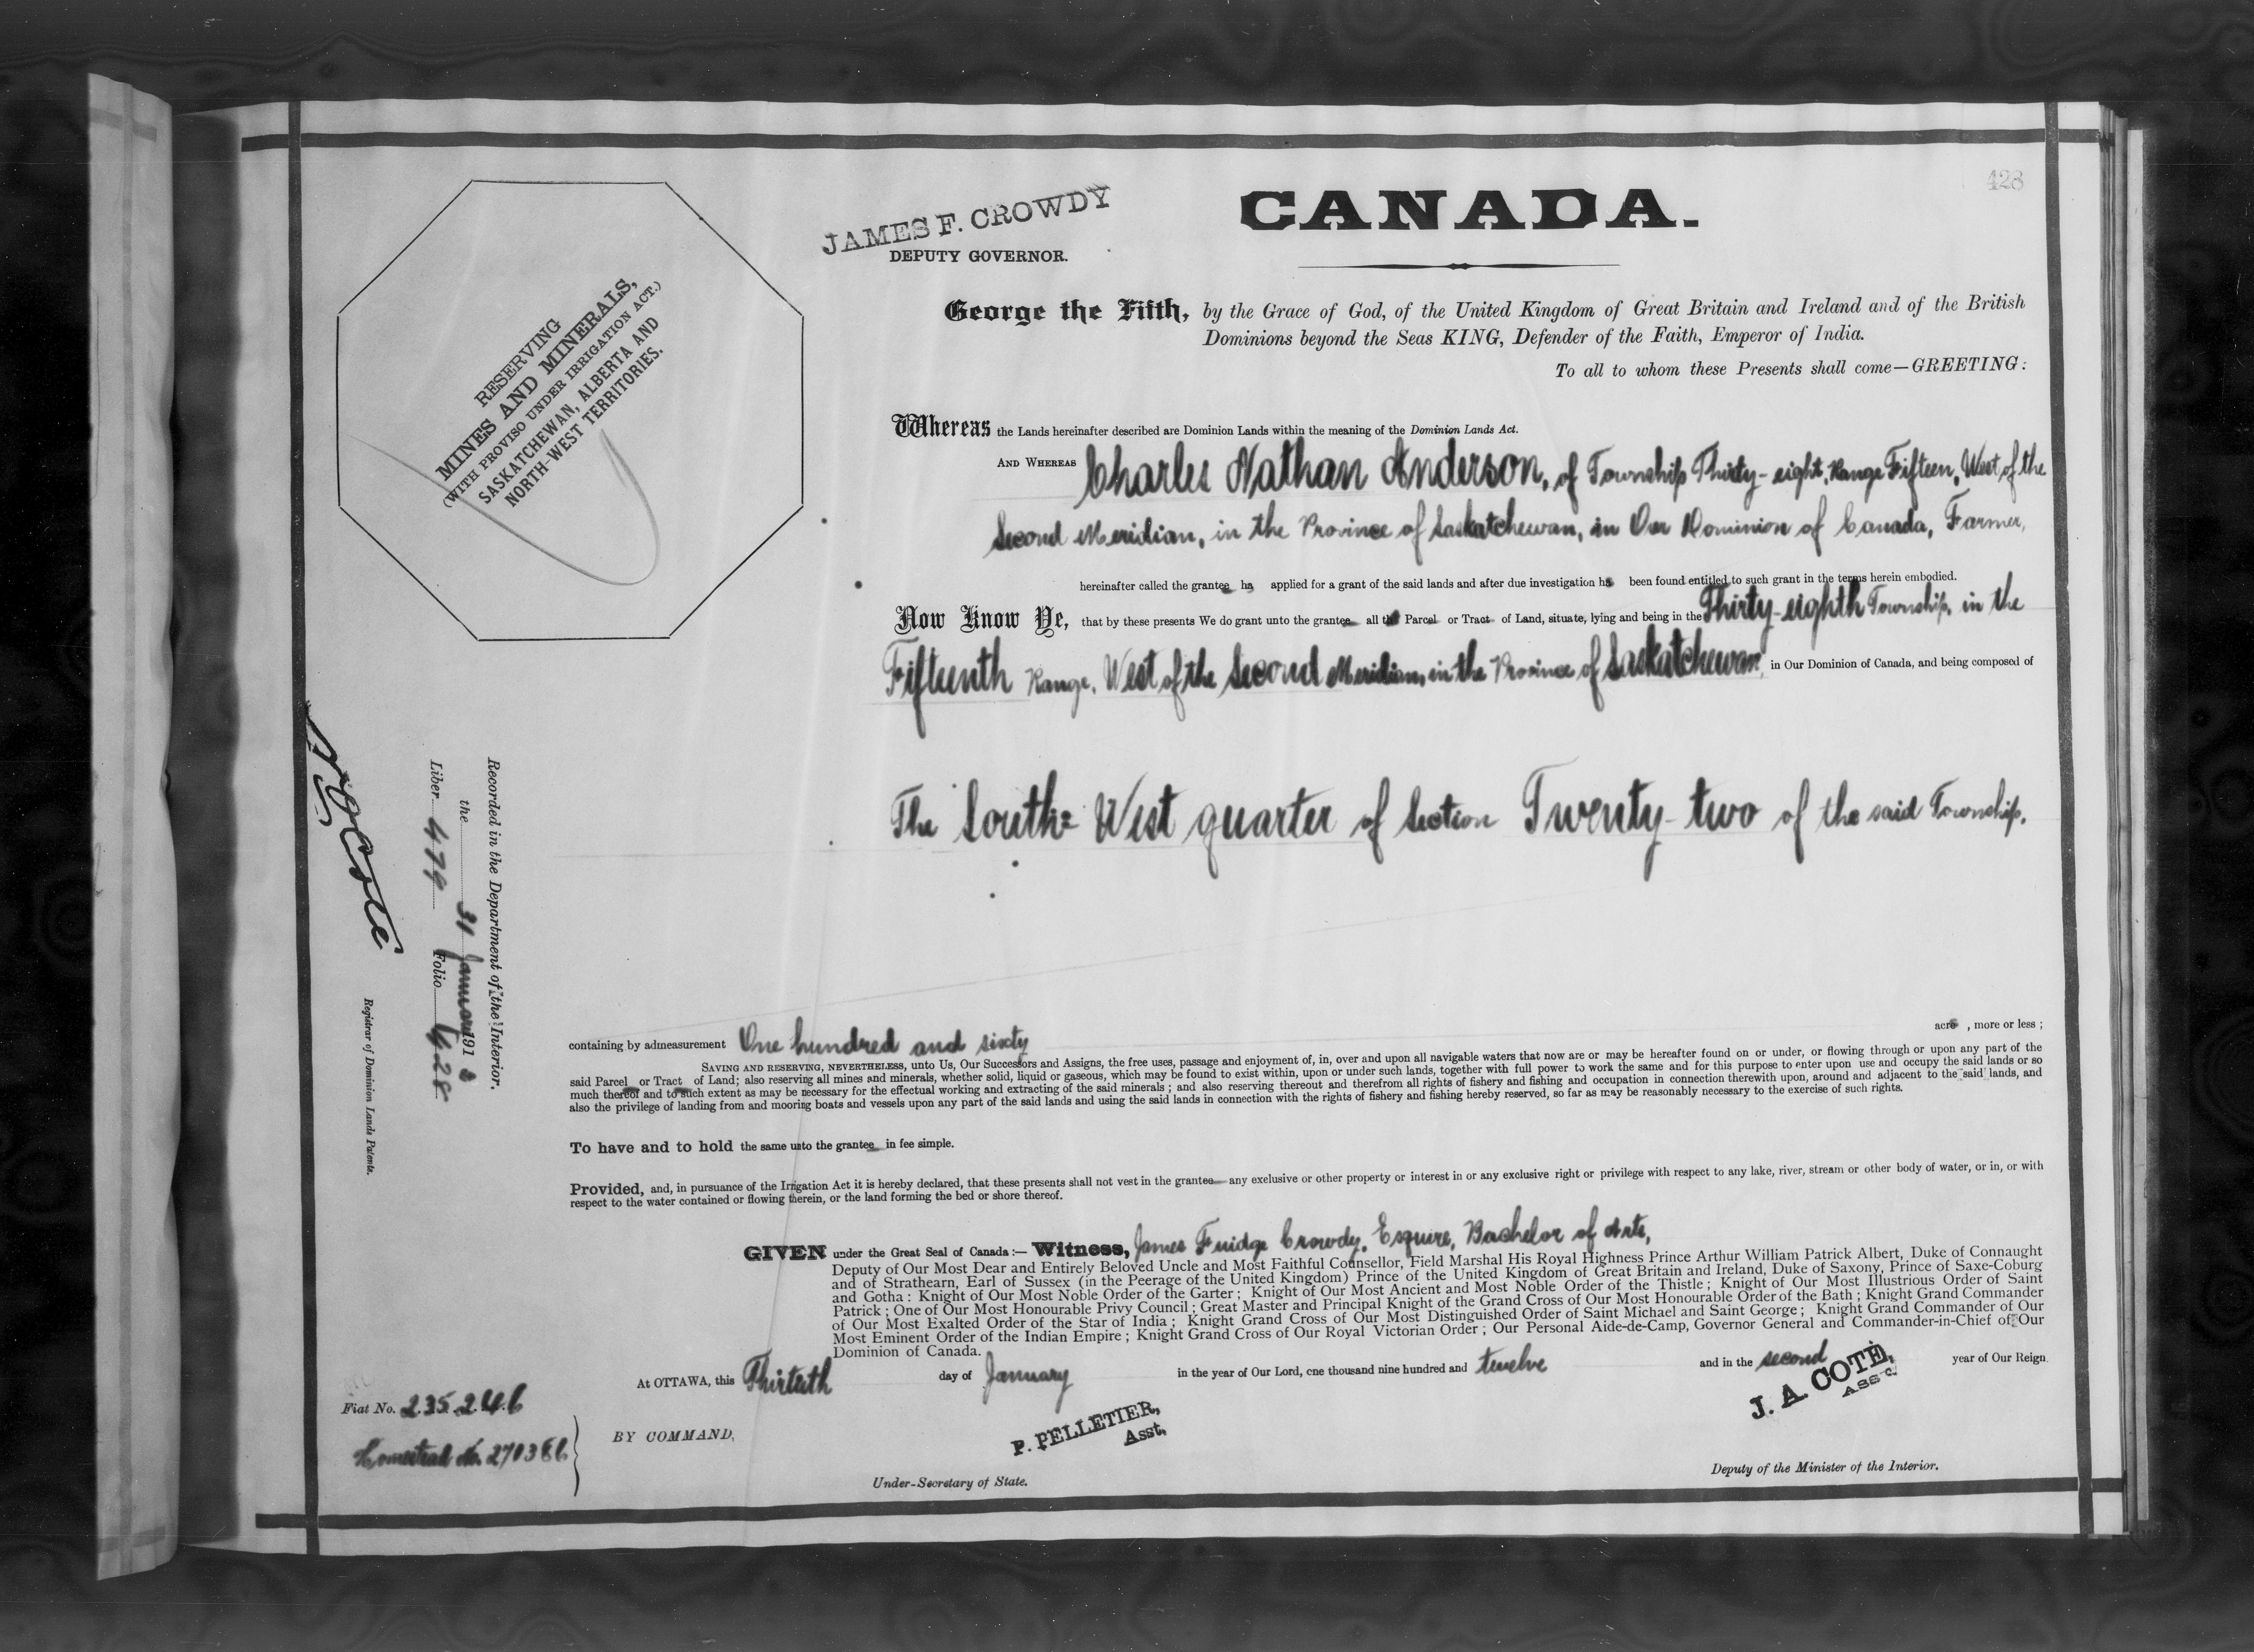 428
JAMES F. CROWDY
DEPUTY GOVERNOR.
CANADA.
RESERVING
MINES AND MINERALS,
(WITH PROVISO UNDER IRRIGATION ACT.)
SASKATCHEWAN, ALBERTA AND
NORTH-WEST TERRITORIES.
George the Fifth, by the Grace of God, of the United Kingdom of Great Britain and Ireland and of the British
Dominions beyond the Seas KING, Defender of the Faith, Emperor of India.
To all to whom these Presents shall come—GREETING:
Whereas the Lands hereinafter described are Dominion Lands within the meaning of the Dominion Lands Act.
AND WHEREAS Charles Nathan Anderson, of Township Thirty-eight, Range Fifteen, West of the
Second Meridian, in the Province of Saskatchewan, in Our Dominion of Canada, Farmer,
hereinafter called the grantee has applied for a grant of the said lands and after due investigation has been found entitled to such grant in the terms herein embodied.
Now Know Ye, that by these presents We do grant unto the grantee all that Parcel or Tract of Land, situate, lying and being in the Thirty-eighth Township, in the
Fifteenth Range, West of the Second Meridian, in the Province of Saskatchewan, in Our Dominion of Canada, and being composed of
The South-West quarter of Section Twenty-two of the said Township.
Recorded in the Department of the Interior.
the 31 January 191
Liber 479 Folio 428
N O Coté
Registrar of Dominion Lands Patents.
containing by admeasurement One hundred and sixty acres, more or less;
SAVING AND RESERVING, NEVERTHELESS, unto Us, Our Successors and Assigns, the free uses, passage and enjoyment of, in, over and upon all navigable waters that now are or may be hereafter found on or under, or flowing through or upon any part of the
said Parcel or Tract of Land; also reserving all mines and minerals, whether solid, liquid or gaseous, which may be found to exist within, upon or under such lands, together with full power to work the same and for this purpose to enter upon use and occupy the said lands or so
much thereof and to such extent as may be necessary for the effectual working and extracting of the said minerals; and also reserving thereout and therefrom all rights of fishery and fishing and occupation in connection therewith upon, around and adjacent to the said lands, and
also the privilege of landing from and mooring boats and vessels upon any part of the said lands and using the said lands in connection with the rights of fishery and fishing hereby reserved, so far as may be reasonably necessary to the exercise of such rights.
To have and to hold the same unto the grantee in fee simple.
Provided, and, in pursuance of the Irrigation Act it is hereby declared, that these presents shall not vest in the grantee any exclusive or other property or interest in or any exclusive right or privilege with respect to any lake, river, stream or other body of water, or in, or with
respect to the water contained or flowing therein, or the land forming the bed or shore thereof.
GIVEN under the Great Seal of Canada:— Witness, James Fuidge Crowdy, Esquire, Bachelor of Arts,
Deputy of Our Most Dear and Entirely Beloved Uncle and Most Faithful Counsellor, Field Marshal His Royal Highness Prince Arthur William Patrick Albert, Duke of Connaught
and of Strathearn, Earl of Sussex (in the Peerage of the United Kingdom) Prince of the United Kingdom of Great Britain and Ireland, Duke of Saxony, Prince of Saxe-Coburg
and Gotha: Knight of Our Most Noble Order of the Garter; Knight of Our Most Ancient and Most Noble Order of the Thistle; Knight of Our Most Illustrious Order of Saint
Patrick; One of Our Most Honourable Privy Council; Great Master and Principal Knight of the Grand Cross of Our Most Honourable Order of the Bath; Knight Grand Commander
of Our Most Exalted Order of the Star of India; Knight Grand Cross of Our Most Distinguished Order of Saint Michael and Saint George; Knight Grand Commander of Our
Most Eminent Order of the Indian Empire; Knight Grand Cross of Our Royal Victorian Order; Our Personal Aide-de-Camp, Governor General and Commander-in-Chief of Our
Dominion of Canada.
At OTTAWA, this Thirtieth day of January in the year of Our Lord, one thousand nine hundred and twelve and in the second year of Our Reign
Fiat No. 235246
Homestead No. 270386
BY COMMAND,
P. PELLETIER,
Asst.
Under-Secretary of State.
J. A. COTÉ,
ASST.
Deputy of the Minister of the Interior.